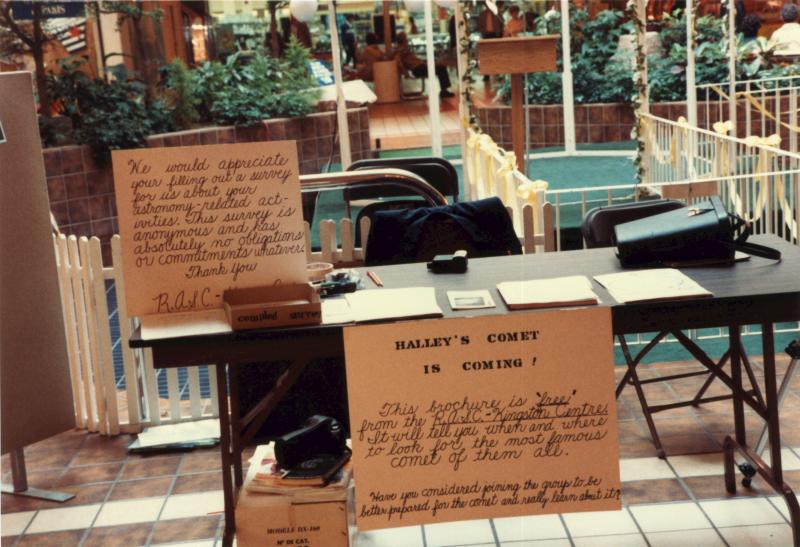 PARIS
We would appreciate
your filling out a survey
for us about your
astronomy-related act-
ivities. This survey is
anonymous and has
absolutely no obligations
or commitments whatever.
Thank you
R.A.S.C.-
HALLEY'S COMET
IS COMING!
This brochure is "free"
from the R.A.S.C.-Kingston Centre.
It will tell you when and where
to look for the most famous
comet of them all.
Have you considered joining the group to be
better prepared for the comet and really learn about it?
MODELE DX-160
Nº DE CAT.